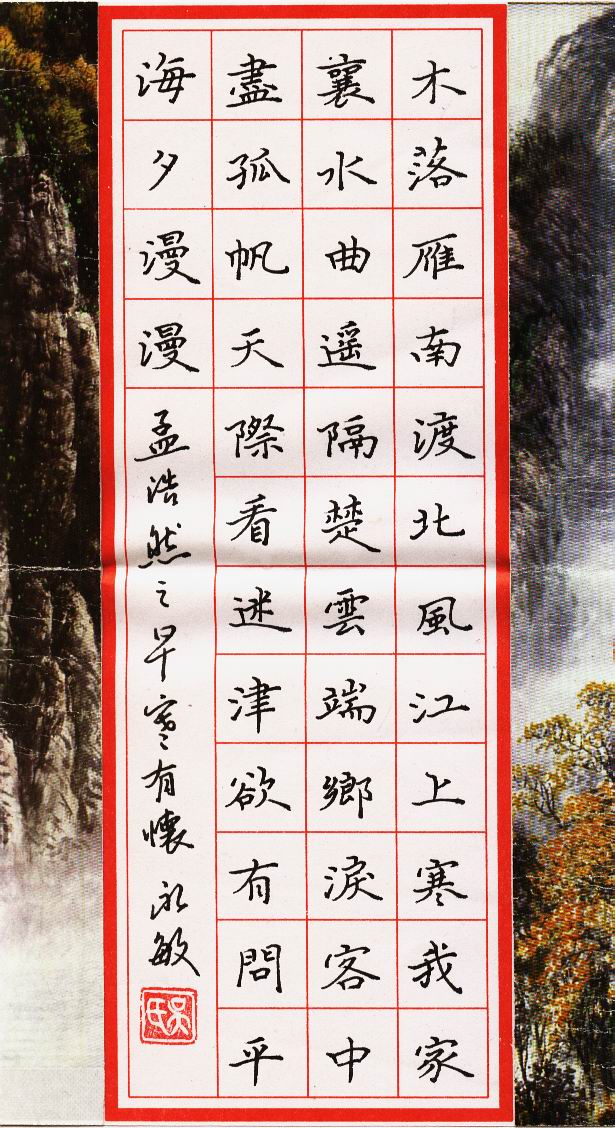 木落雁南渡北風江上寒我家
襄水曲遥隔楚雲端鄉淚客中
盡孤帆天際看迷津欲有問平
海夕漫漫 孟浩然之早寒有懷 永敏
吳氏